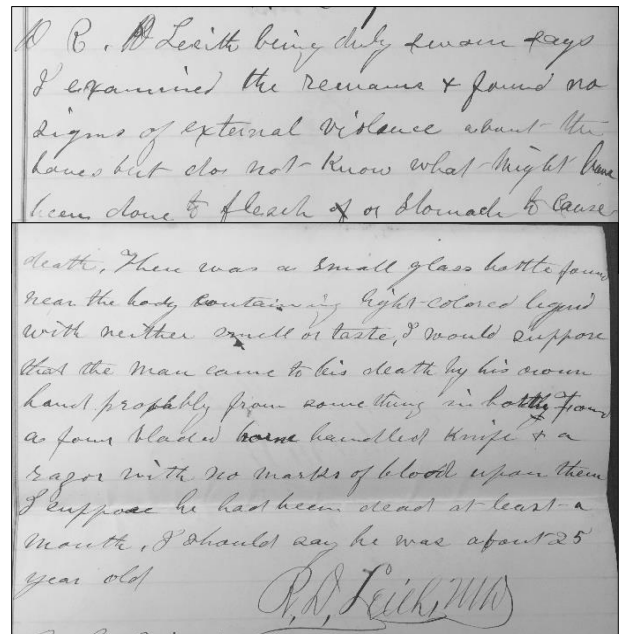 D R. D Leith being duly sworn says
I examined the remains & found no
signs of external violence about the
bones but dos not Know what might have
been done to flesh of or stomach to cause
death, There was a small glass bottle found
near the body containing light-colored liquid
with neither smell or taste, I would suppose
that the man came to his death by his own
hand propably from something in bottle found
a four bladed horne handled Knife & a
razor with no marks of blood upon them
I suppose he had been dead at least a
mouth, I should say he was about 25
year old
R, D, Leith, MD